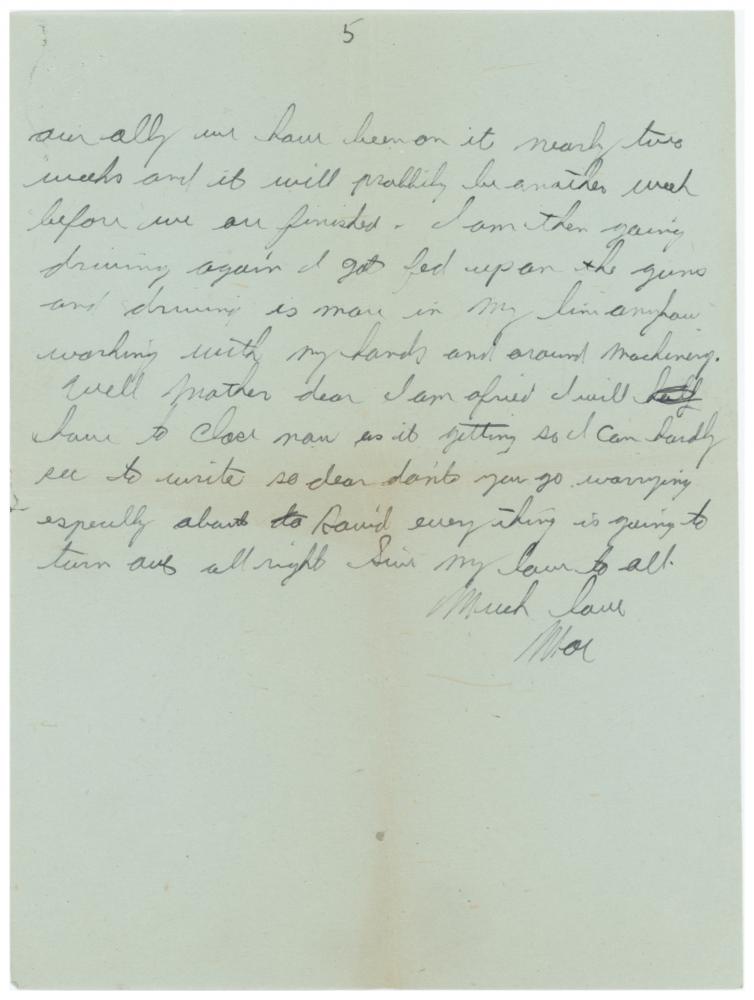 5
our ally we have been on it nearly two
weeks and it will probbily be another week
before we are finished. I am then going
driving again I got fed up on the guns
and driving is more in my line anyhow
working with my hands and around machinery.
Well Mother dear I am afried I will half
have to close now as it getting so I can hardly
see to write so dear don't you go worrying
especully about to David every thing is going to
turn out all right Give my love to all.
Much love
Moe